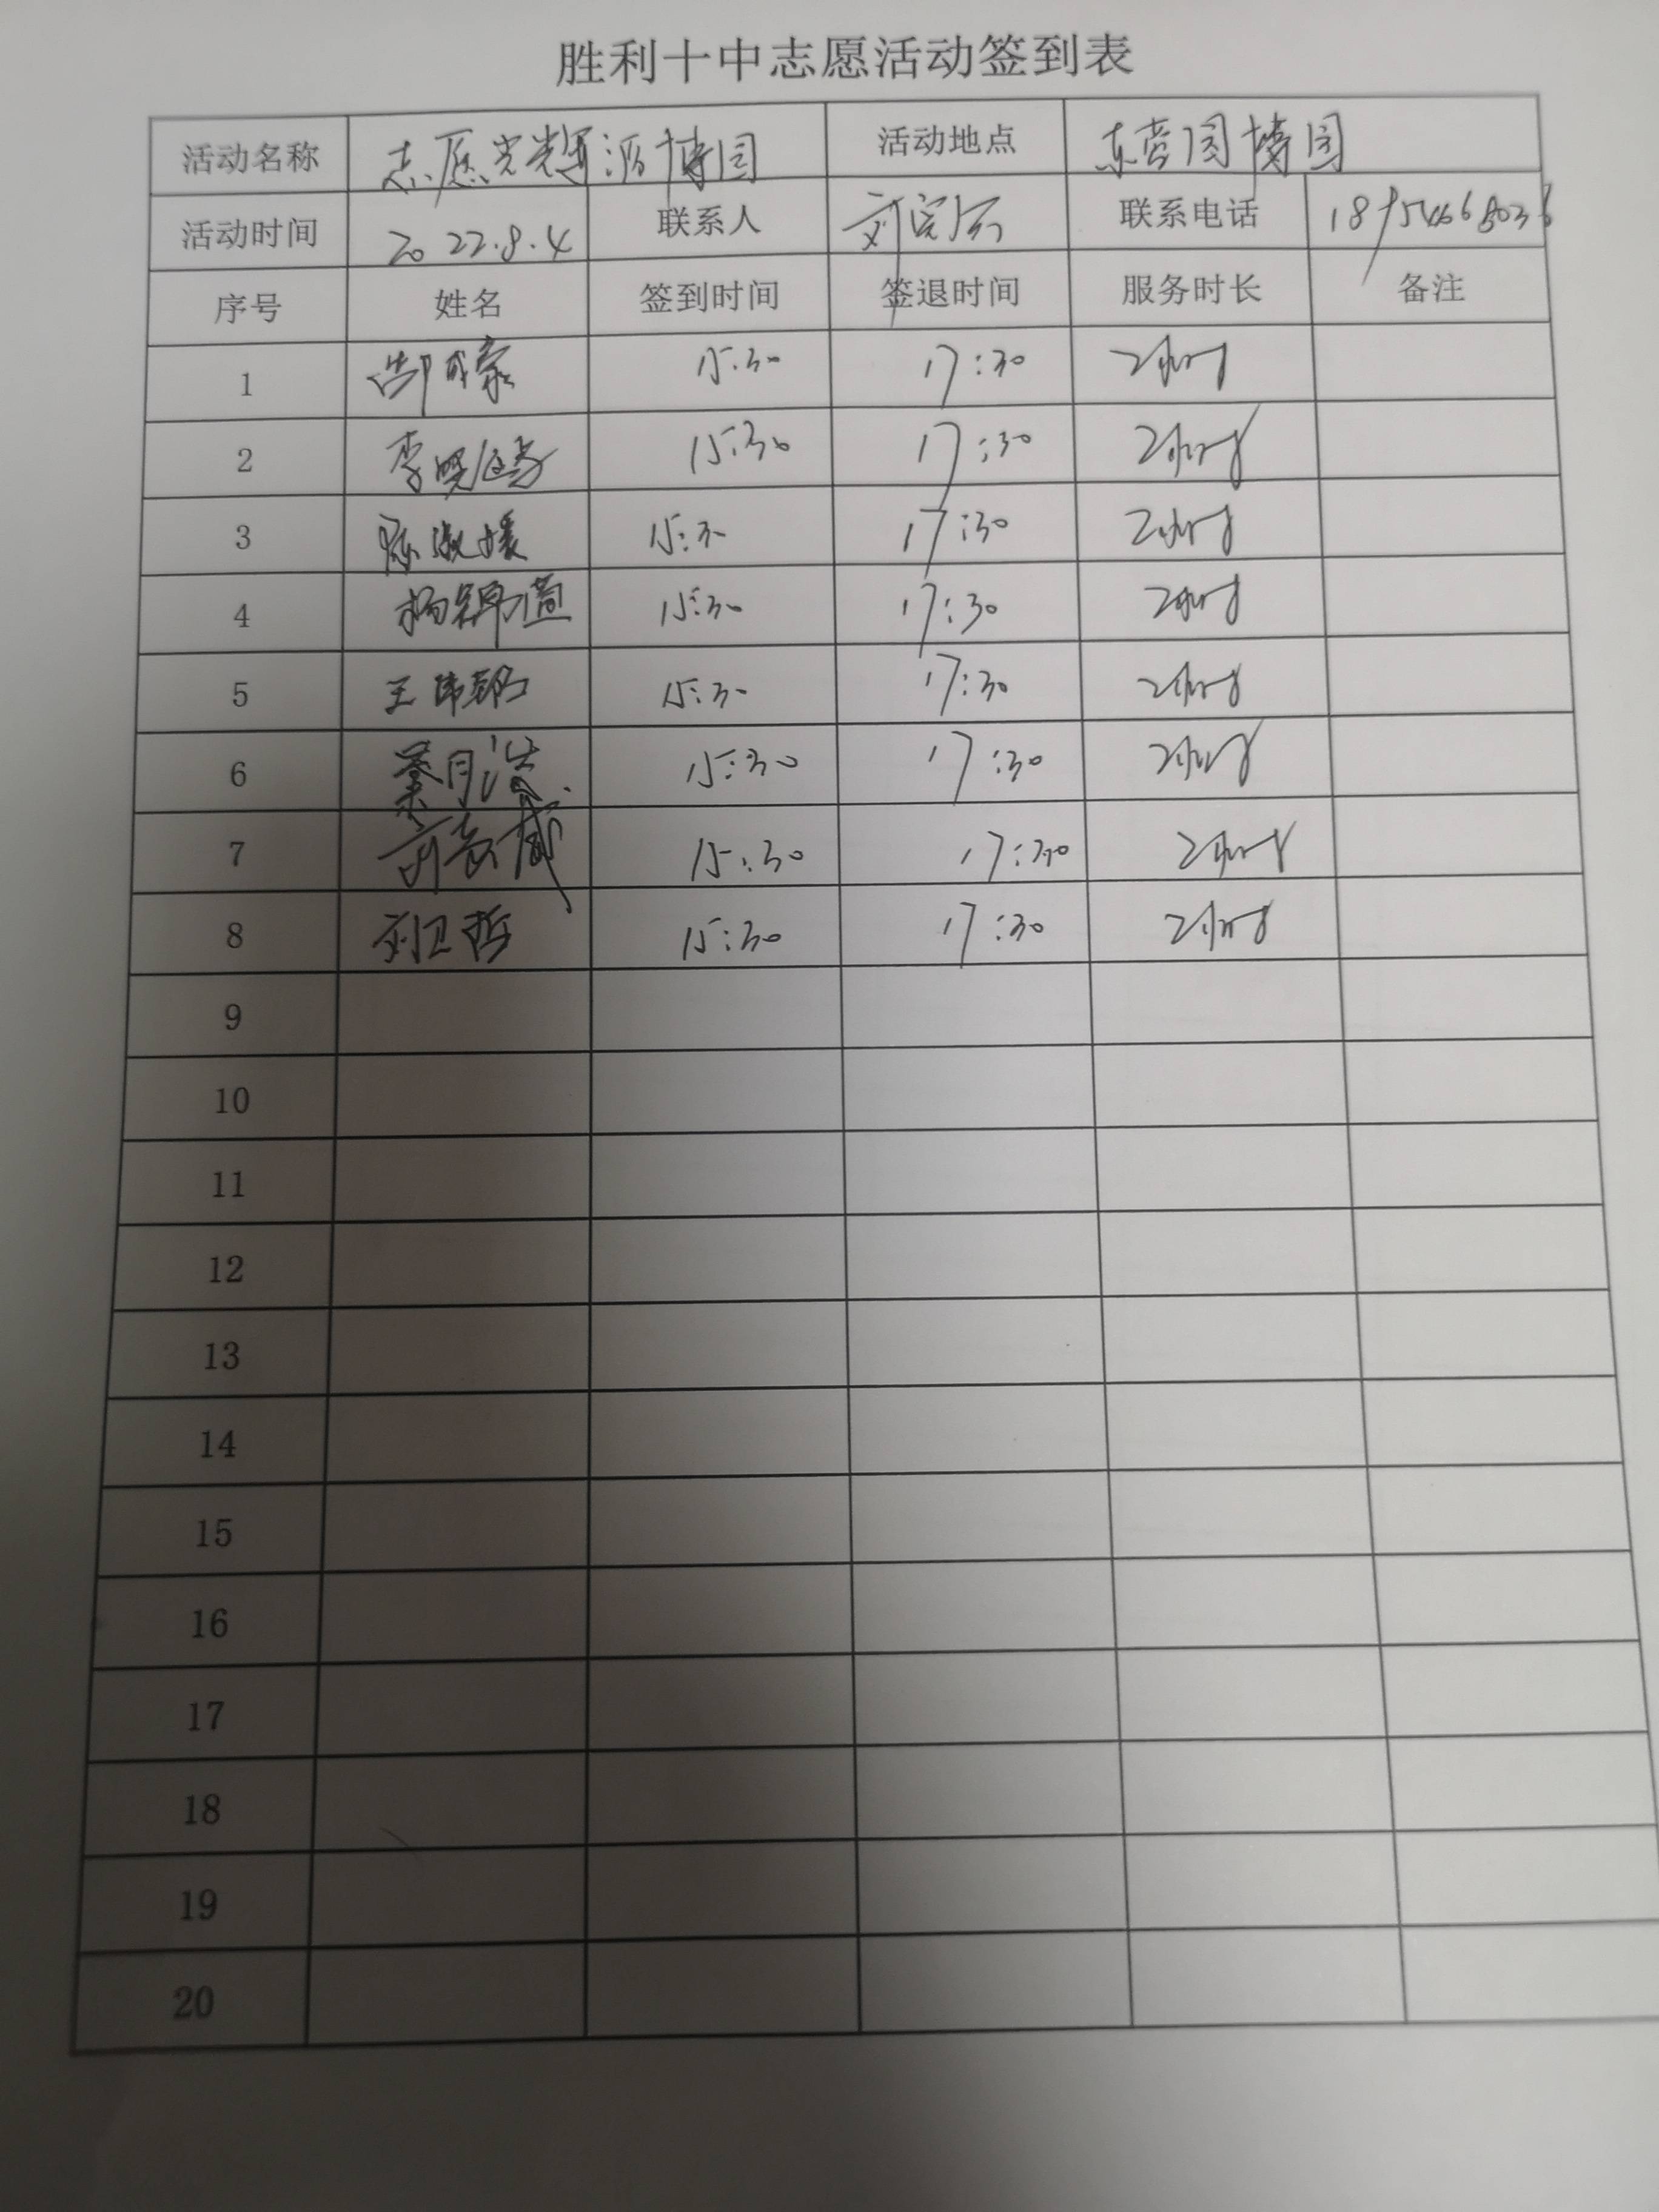 胜利十中志愿活动签到表
活动名称 志愿光辉 博园 活动地点 东营园博园
活动时间 2022.8.4 联系人 刘 联系电话
序号 姓名 签到时间 签退时间 服务时长 备注
1 15:30 17:30 2小时
2 李 15:30 17:30 2小时
3 陈淑媛 15:30 17:30 2小时
4 杨锦萱 15:30 17:30 2小时
5 王 15:30 17:30 2小时
6 綦月浩 15:30 17:30 2小时
7 15:30 17:30 2小时
8 刘卫哲 15:30 17:30 2小时
9
10
11
12
13
14
15
16
17
18
19
20